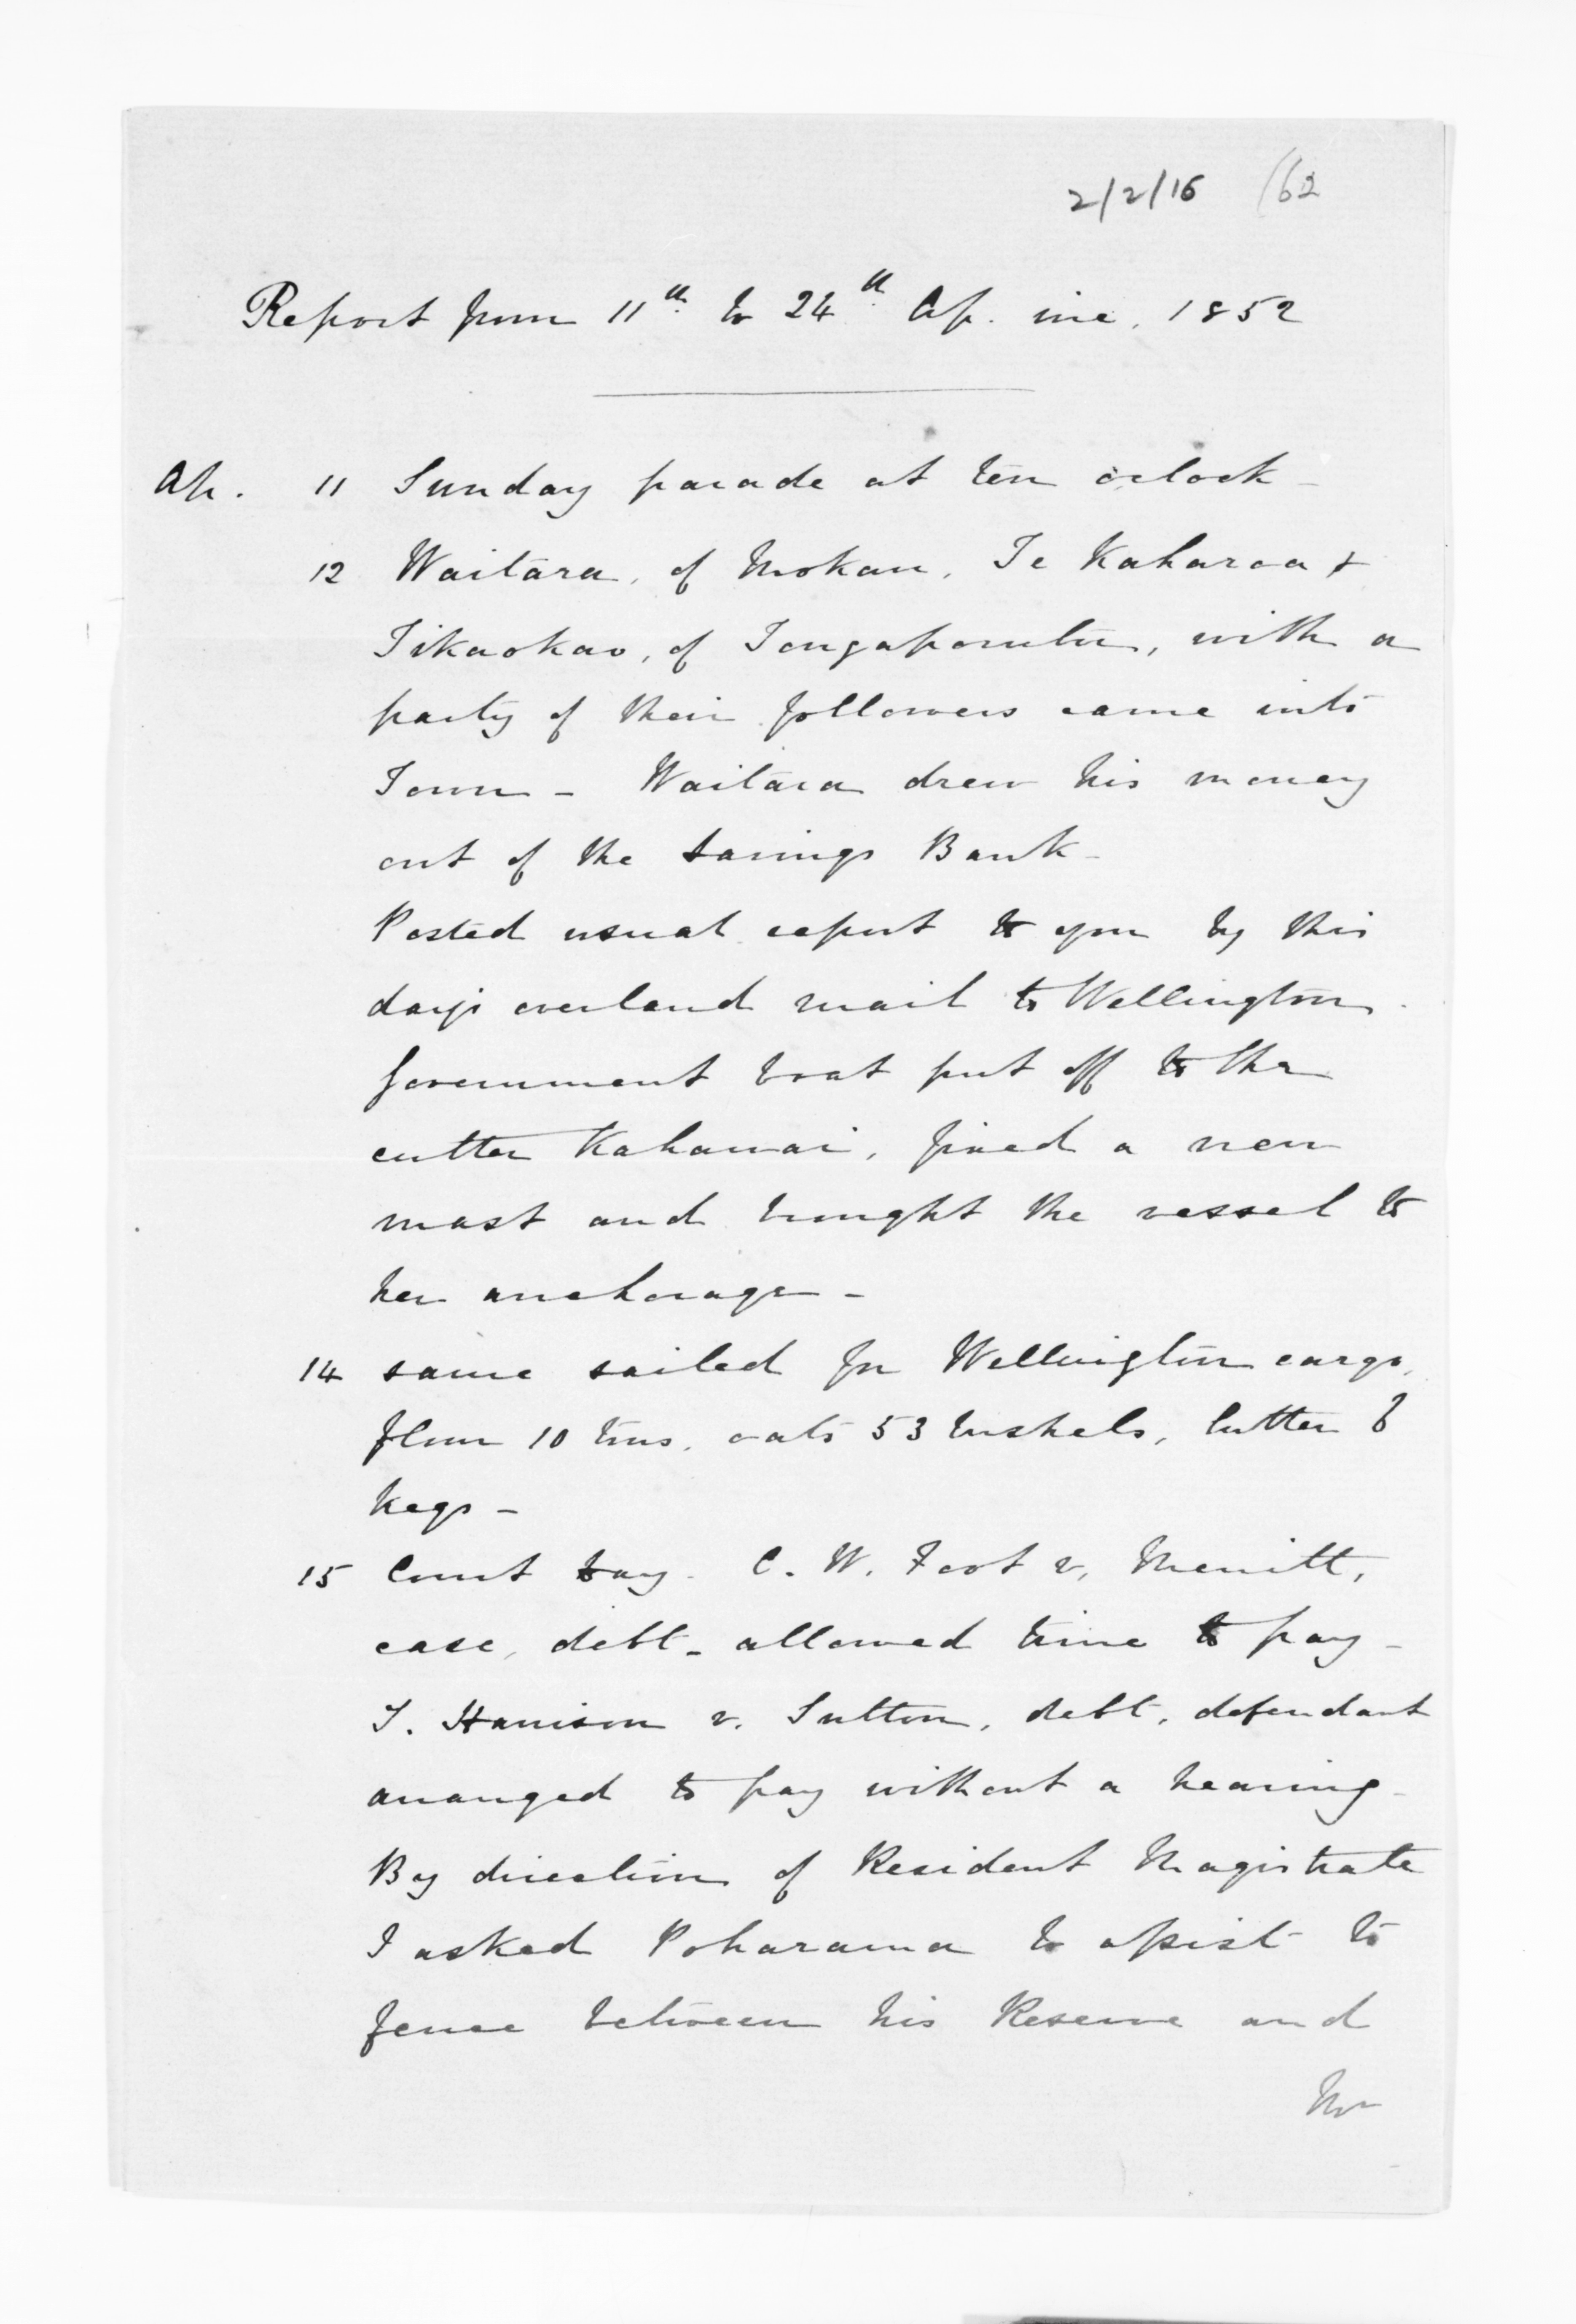 2/2/16 (62
Report from 11th to 24th Ap. inc. 1852
Ap. 11 Sunday parade at ten o'clock -
12 Waitara, of Mokau, Te Kaharoa &
Tikaokao, of Tongaporutu, with a
party of their followers came into
Town - Waitara drew his money
out of the Savings Bank -
Posted usual report to you by this
day's overland mail to Wellington.
Government boat put off to the
cutter Kahawai, fixed a new
mast and brought the vessel to
her anchorage -
14 same sailed for Wellington cargo,
flour 10 tons, oats 53 bushels, butter 6
kegs -
15 Court day. C. W. Foot v. Merritt,
case, debt - allowed time to pay -
T. Harrison v. Sutton, debt, defendant
arranged to pay without a hearing -
By direction of Resident Magistrate
I asked Poharama to assist to
fence between his Reserve and
Mr